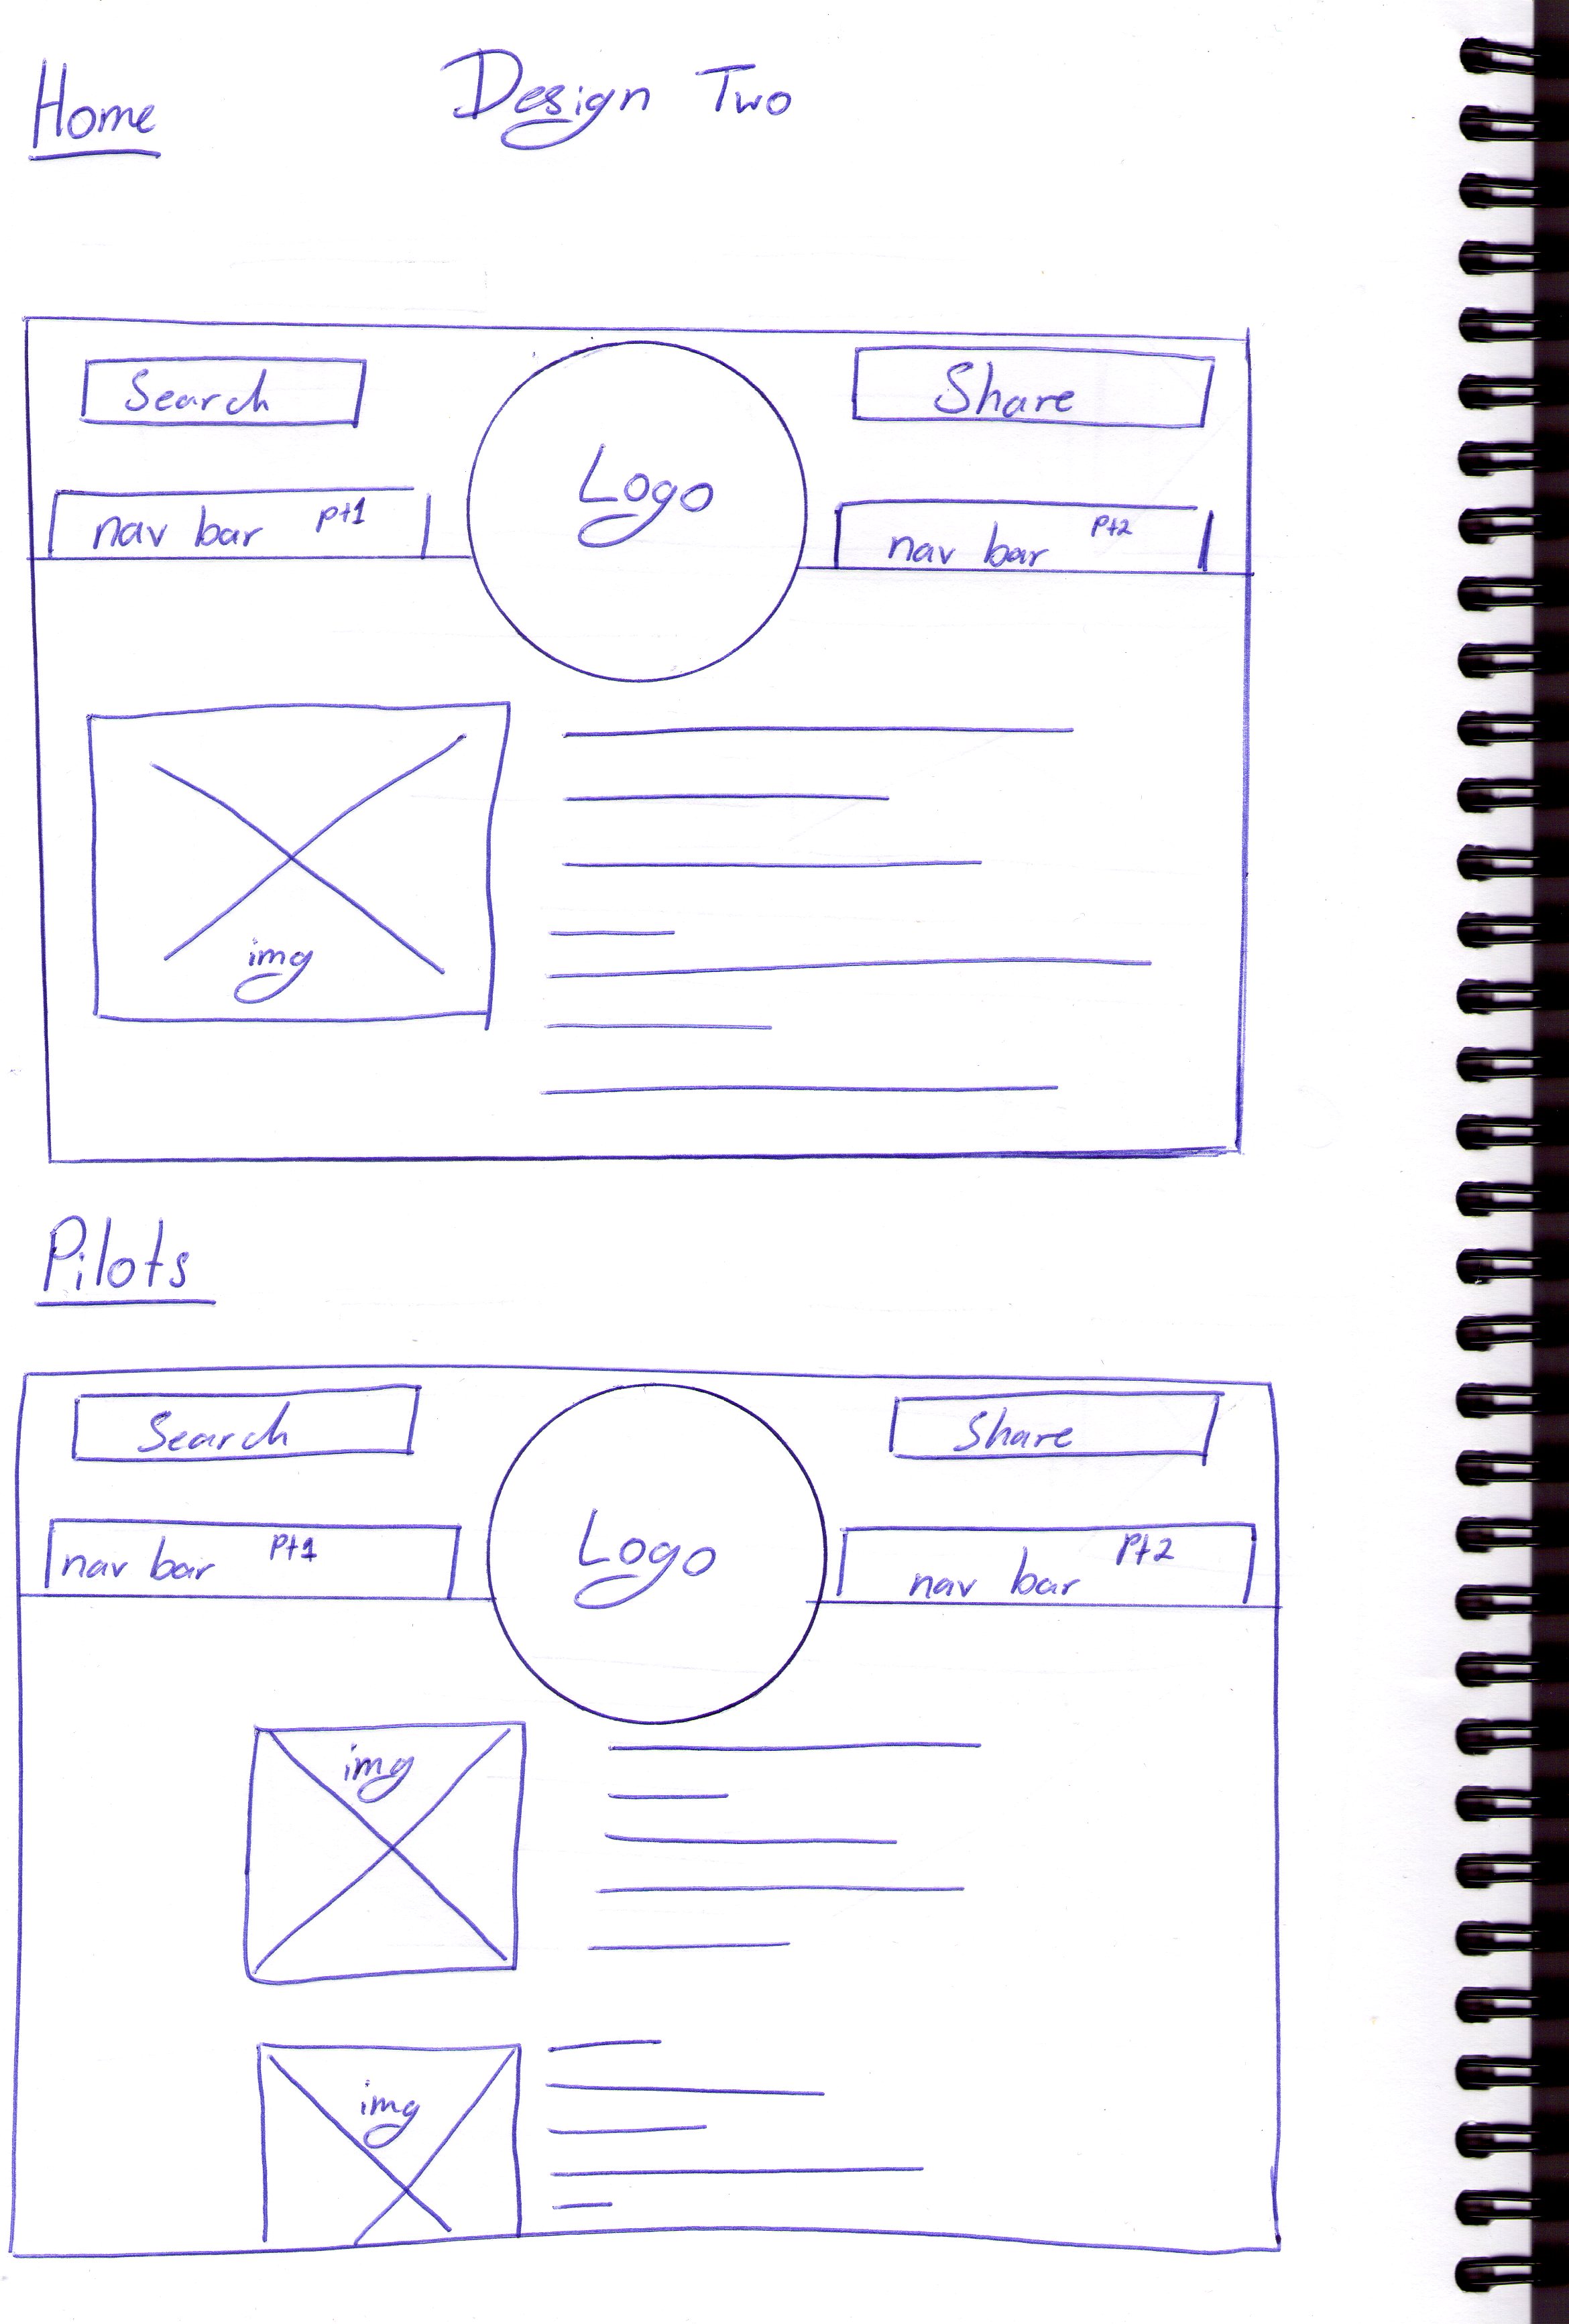 Home
Design Two
Search
Share
Logo
nav bar pt1
nav bar pt2
img
Pilots
Search
Share
Logo
nav bar pt1
nav bar pt2
img
img